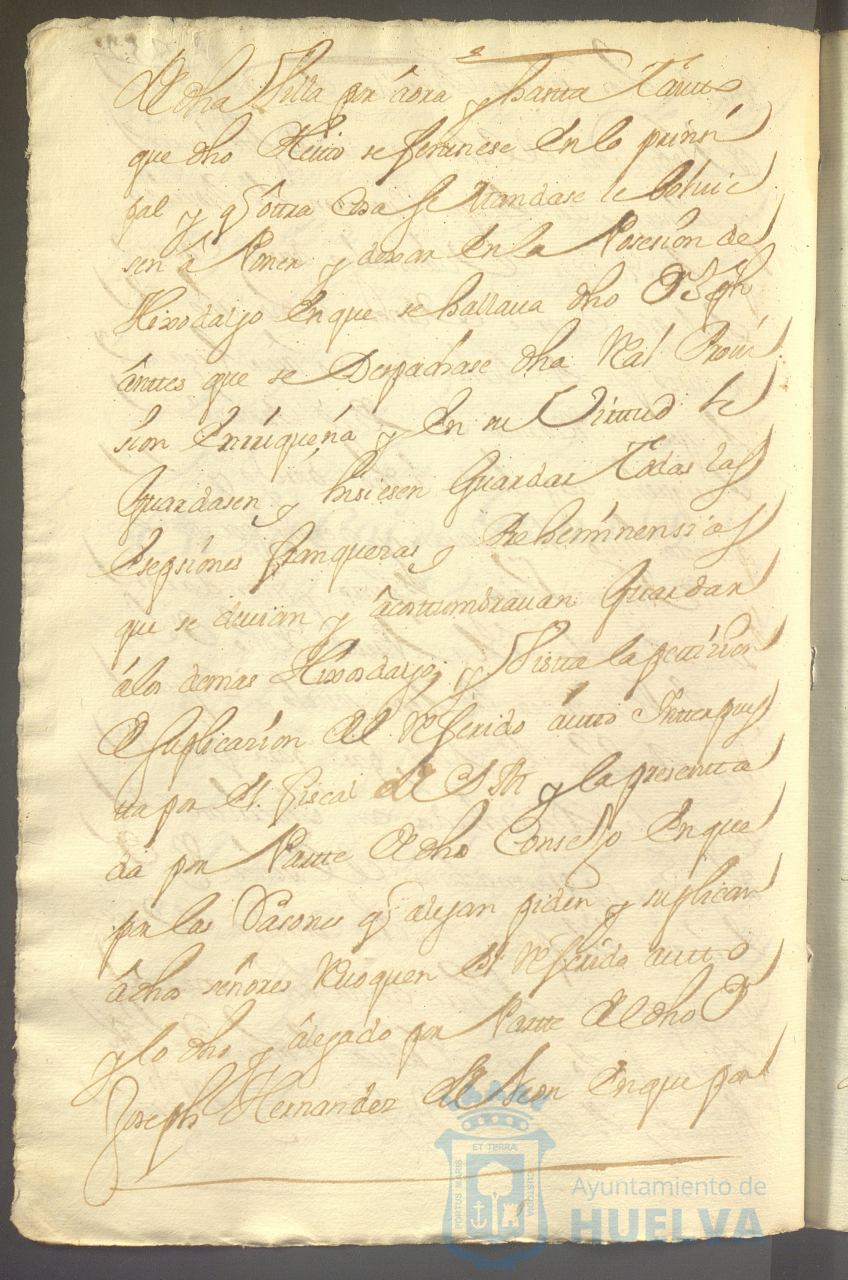 de dha Villa por aôra y hasta tantto
que dho Pleito se fenesiese en lo prinsi
pal y qe ôttra cosa se mandase le bolvie
sen â Poner y dexar en la Posesion de
Hixodalgo en que se hallava dho Dn Jph
ânttes que se Despachase dha Real Provi
sion Enrriqueña y en su Virttud le
Guardasen y hisiesen Guardar Todas las
esepsiones franquezas y Preheminensias
que se devian y âcostumbravan Guardar
âlos demas Hixosdalgo, y Vistta la petizion
de suplicazion del Referido âutto Intterpues
tta por el fiscal de S.M. y la presentta
da por Partte de dho Consejo en que
por las Rasones qe alegan piden y suplican
âdhos señores Revoquen el Referido autto
y lo dho y âlegado por Partte del dho Dn
Joseph Hernandez de Leon en que por
ET TERRA
PORTUS MARIS
CUSTODIA
Ayuntamiento de
HUELVA